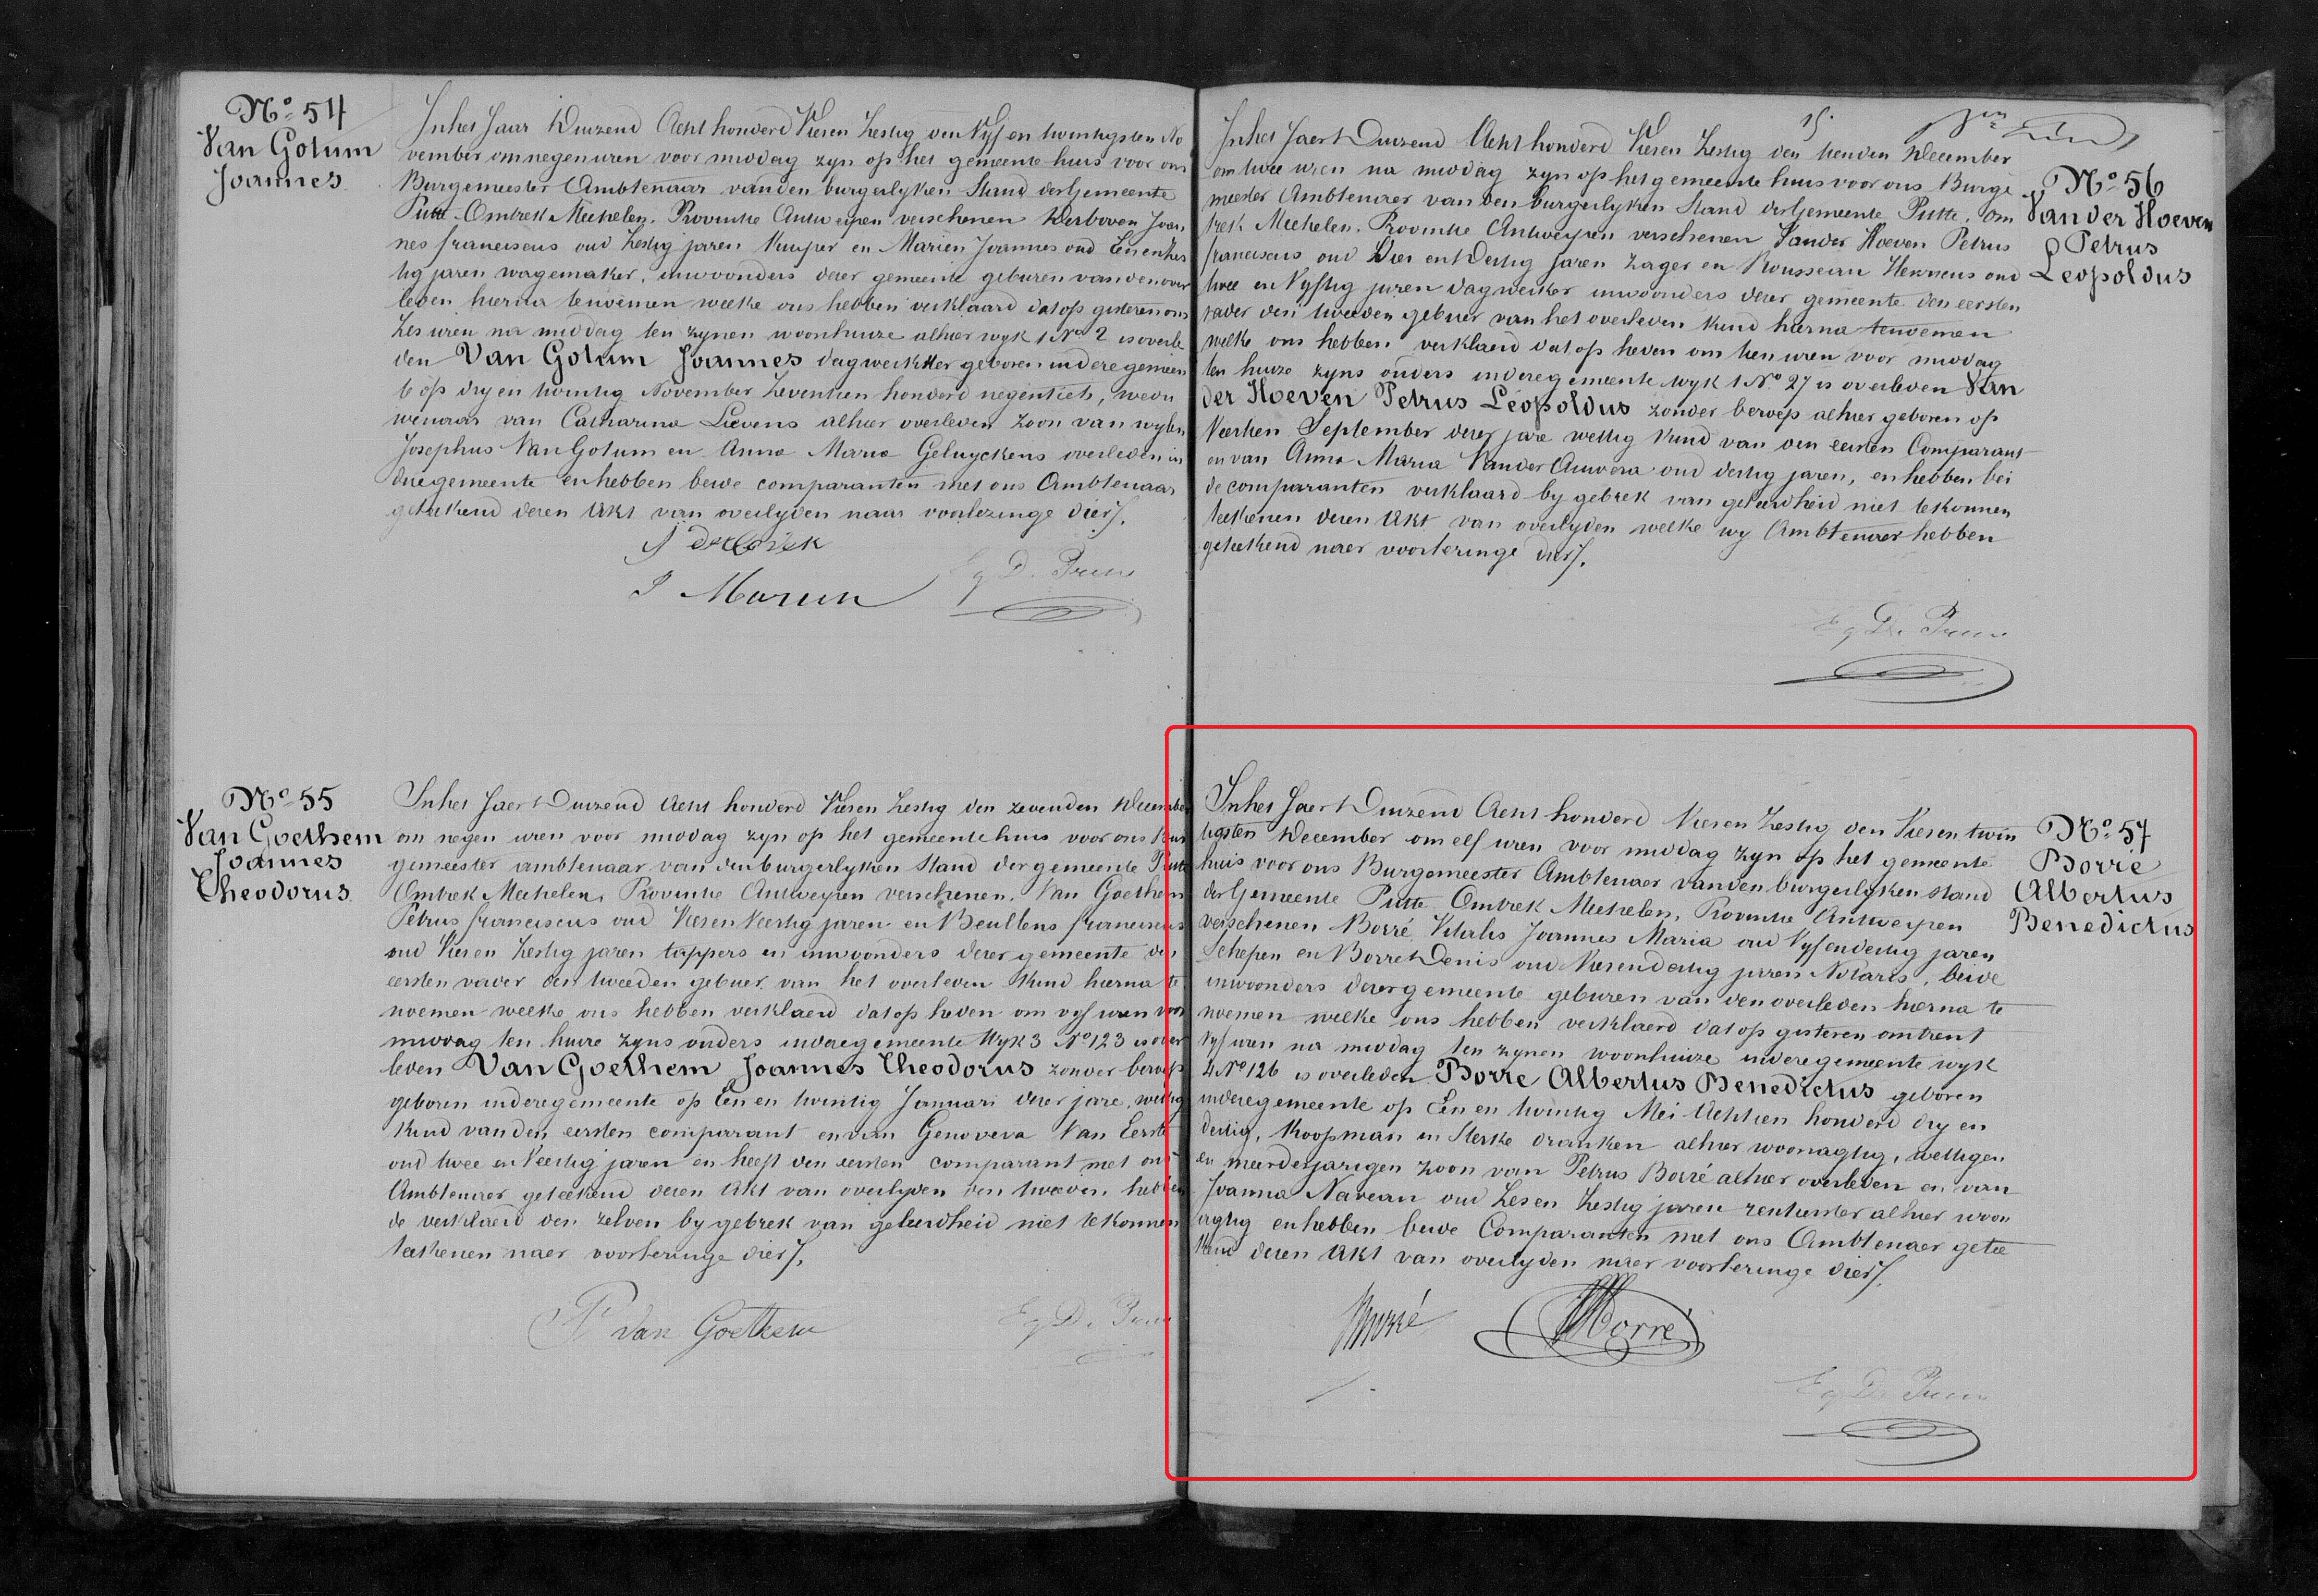 Nº 54
Van Gotum
Joannes
In het Jaar Duizend Acht honderd Vieren Zestig den Vyf en twintigsten No
vember om negen uren voor middag zyn op het gemeente huis voor ons
Burgemeester Ambtenaar van den burgerlyken Stand der Gemeente
Putte Omtrek Mechelen, Provintie Antwerpen verschenen Verboven Joan
nes franciscus oud Zestig jaren Kuyper en Mariën Joannes oud Een en Zes
tig jaren wagemaker, inwoonders dezer gemeente geburen van den over
leden hierna tenoemen welke ons hebben verklaard dat op gisteren om
Zes uren na middag ten zynen woonhuize alhier wyk 1 Nº 2 is overle
den Van Gotum Joannes dagwerkker geboren in deze gemeen
te op dry en twintig November Zeventien honderd negentich, wedu
wenaar van Catharina Lievens alhier overleden Zoon van wylen
Josephus Van Gotum en Anna Maria Geluyckens overleden in
deze gemeente en hebben beide comparanten met ons Ambtenaar
geteekend dezen Akt van overlyden naar voorlezinge dier/.
J Marien
Eg D. Prins
Nº 55
Van Goethem
Joannes
Theodorus
In het Jaer Duizend Acht honderd Vieren Zestig den zevenden December
om negen uren voor middag zyn op het gemeentehuis voor ons Bur
gemeester ambtenaar van den burgerlyken Stand der gemeente Putte
Omtrek Mechelen, Provintie Antwerpen verschenen, Van Goethem
Petrus franciscus oud Vieren Veertig jaren en Beullens franciscus
oud Vieren Zestig jaren tappers en inwoonders dezer gemeente den
eersten vader den tweeden gebuer van het overleden Kind hierna te
noemen welke ons hebben verklaerd dat op heden om vyf uren voor
middag ten huize zyns ouders in deze gemeente Wyk 3 Nº 123 is over
leden Van Goethem Joannes Theodorus zonder beroep
geboren in deze gemeente op Een en twintig Januari dezer jare, wettig
Kind van den eersten comparant en van Genoveva Van Eerste
oud twee en Veertig jaren en heeft den eersten comparant met ons
Ambtenaer geteekend dezen Akt van overlyden den tweeden hebben
de verklaerd den zelven by gebrek van geleerdheid niet te konnen
teekenen naer voorlezinge dier/.
P Van Goethem
Eg D. Prins
15.
In het Jaer Duizend Acht honderd Vieren Zestig den tienden December
om twee uren na middag zyn op het gemeente huis voor ons Burge
meester Ambtenaer van den burgerlyken Stand der Gemeente Putte, Om
trek Mechelen, Provintie Antwerpen verschenen Vander Hoeven Petrus
franciscus oud Vier en Dertig jaren Zager en Rousseau Henricus oud
twee en Vyftig jaren dagwerker inwoonders dezer gemeente den eersten
vader den tweeden gebuer van het overleden Kind hierna tenoemen
welke ons hebben verklaerd dat op heden om tien uren voor middag
ten huize zyns ouders in deze gemeente wyk 1 Nº 27 is overleden Van
der Hoeven Petrus Leopoldus zonder beroep alhier geboren op
Veertien September dezer jare wettig Kind van den eersten Comparant
en van Anna Maria Vander Auwera oud dertig jaren, en hebben bei
de comparanten verklaard by gebrek van geleerdheid niet te konnen
teekenen dezen Akt van overlyden welke wy Ambtenaer hebben
geteekend naer voorlezinge dier/.
Eg D. Prins
Nº 56
Van der Hoeven
Petrus
Leopoldus
In het Jaer Duizend Acht honderd Vieren Zestig den Vieren twin
tigsten December om elf uren voor middag zyn op het gemeente
huis voor ons Burgemeester Ambtenaer van den burgerlyken stand
der Gemeente Putte Omtrek Mechelen, Provintie Antwerpen
verschenen Borré Vitalis Joannes Maria oud Vyf en dertig jaren
Schepen en Borré Denis oud Vieren dertig jaren Notaris, beide
inwoonders dezer gemeente geburen van den overleden hierna te
noemen welke ons hebben verklaerd dat op gisteren omtrent
Vyf uren na middag ten zynen woonhuize in deze gemeente wyk
4 Nº 126 is overleden Borré Albertus Benedictus geboren
in deze gemeente op Een en twintig Mei Achtien honderd dry en
dertig, Koopman in Sterke dranken alhier woonagtig, wettigen
en meerderjarigen zoon van Petrus Borré alhier overleden en van
Joanna Naveau oud Zes en Zestig jaren rentenier alhier woon
agtig en hebben beide Comparanten met ons Ambtenaer getee
kend dezen Akt van overlyden naer voorlezinge dier/.
Borré
Borré
Eg D. Prins
Nº 57
Borré
Albertus
Benedictus